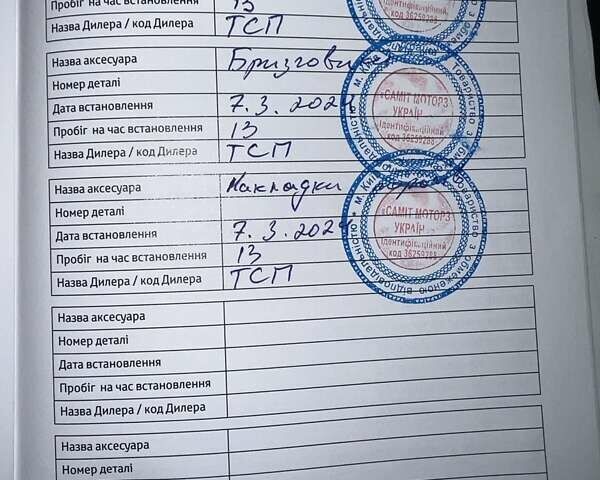 Пробіг на час встановлення 13
Назва Дилера / код Дилера ТСП
Ідентифікаційний
код 36259288
Назва аксесуара Бризговики
Номер деталі
Дата встановлення 7.3.2024
Пробіг на час встановлення 13
Назва Дилера / код Дилера ТСП
«САМІТ МОТОРЗ
УКРАЇН
Ідентифікаційний
код 36259288
Назва аксесуара Накладки
Номер деталі
Дата встановлення 7.3.2024
Пробіг на час встановлення 13
Назва Дилера / код Дилера ТСП
Товариство з обмеженою відповідальністю * м. Київ
«САМІТ МОТОРЗ
УКРАЇН
Ідентифікаційний
код 36259288
Назва аксесуара
Номер деталі
Дата встановлення
Пробіг на час встановлення
Назва Дилера / код Дилера
Назва аксесуара
Номер деталі